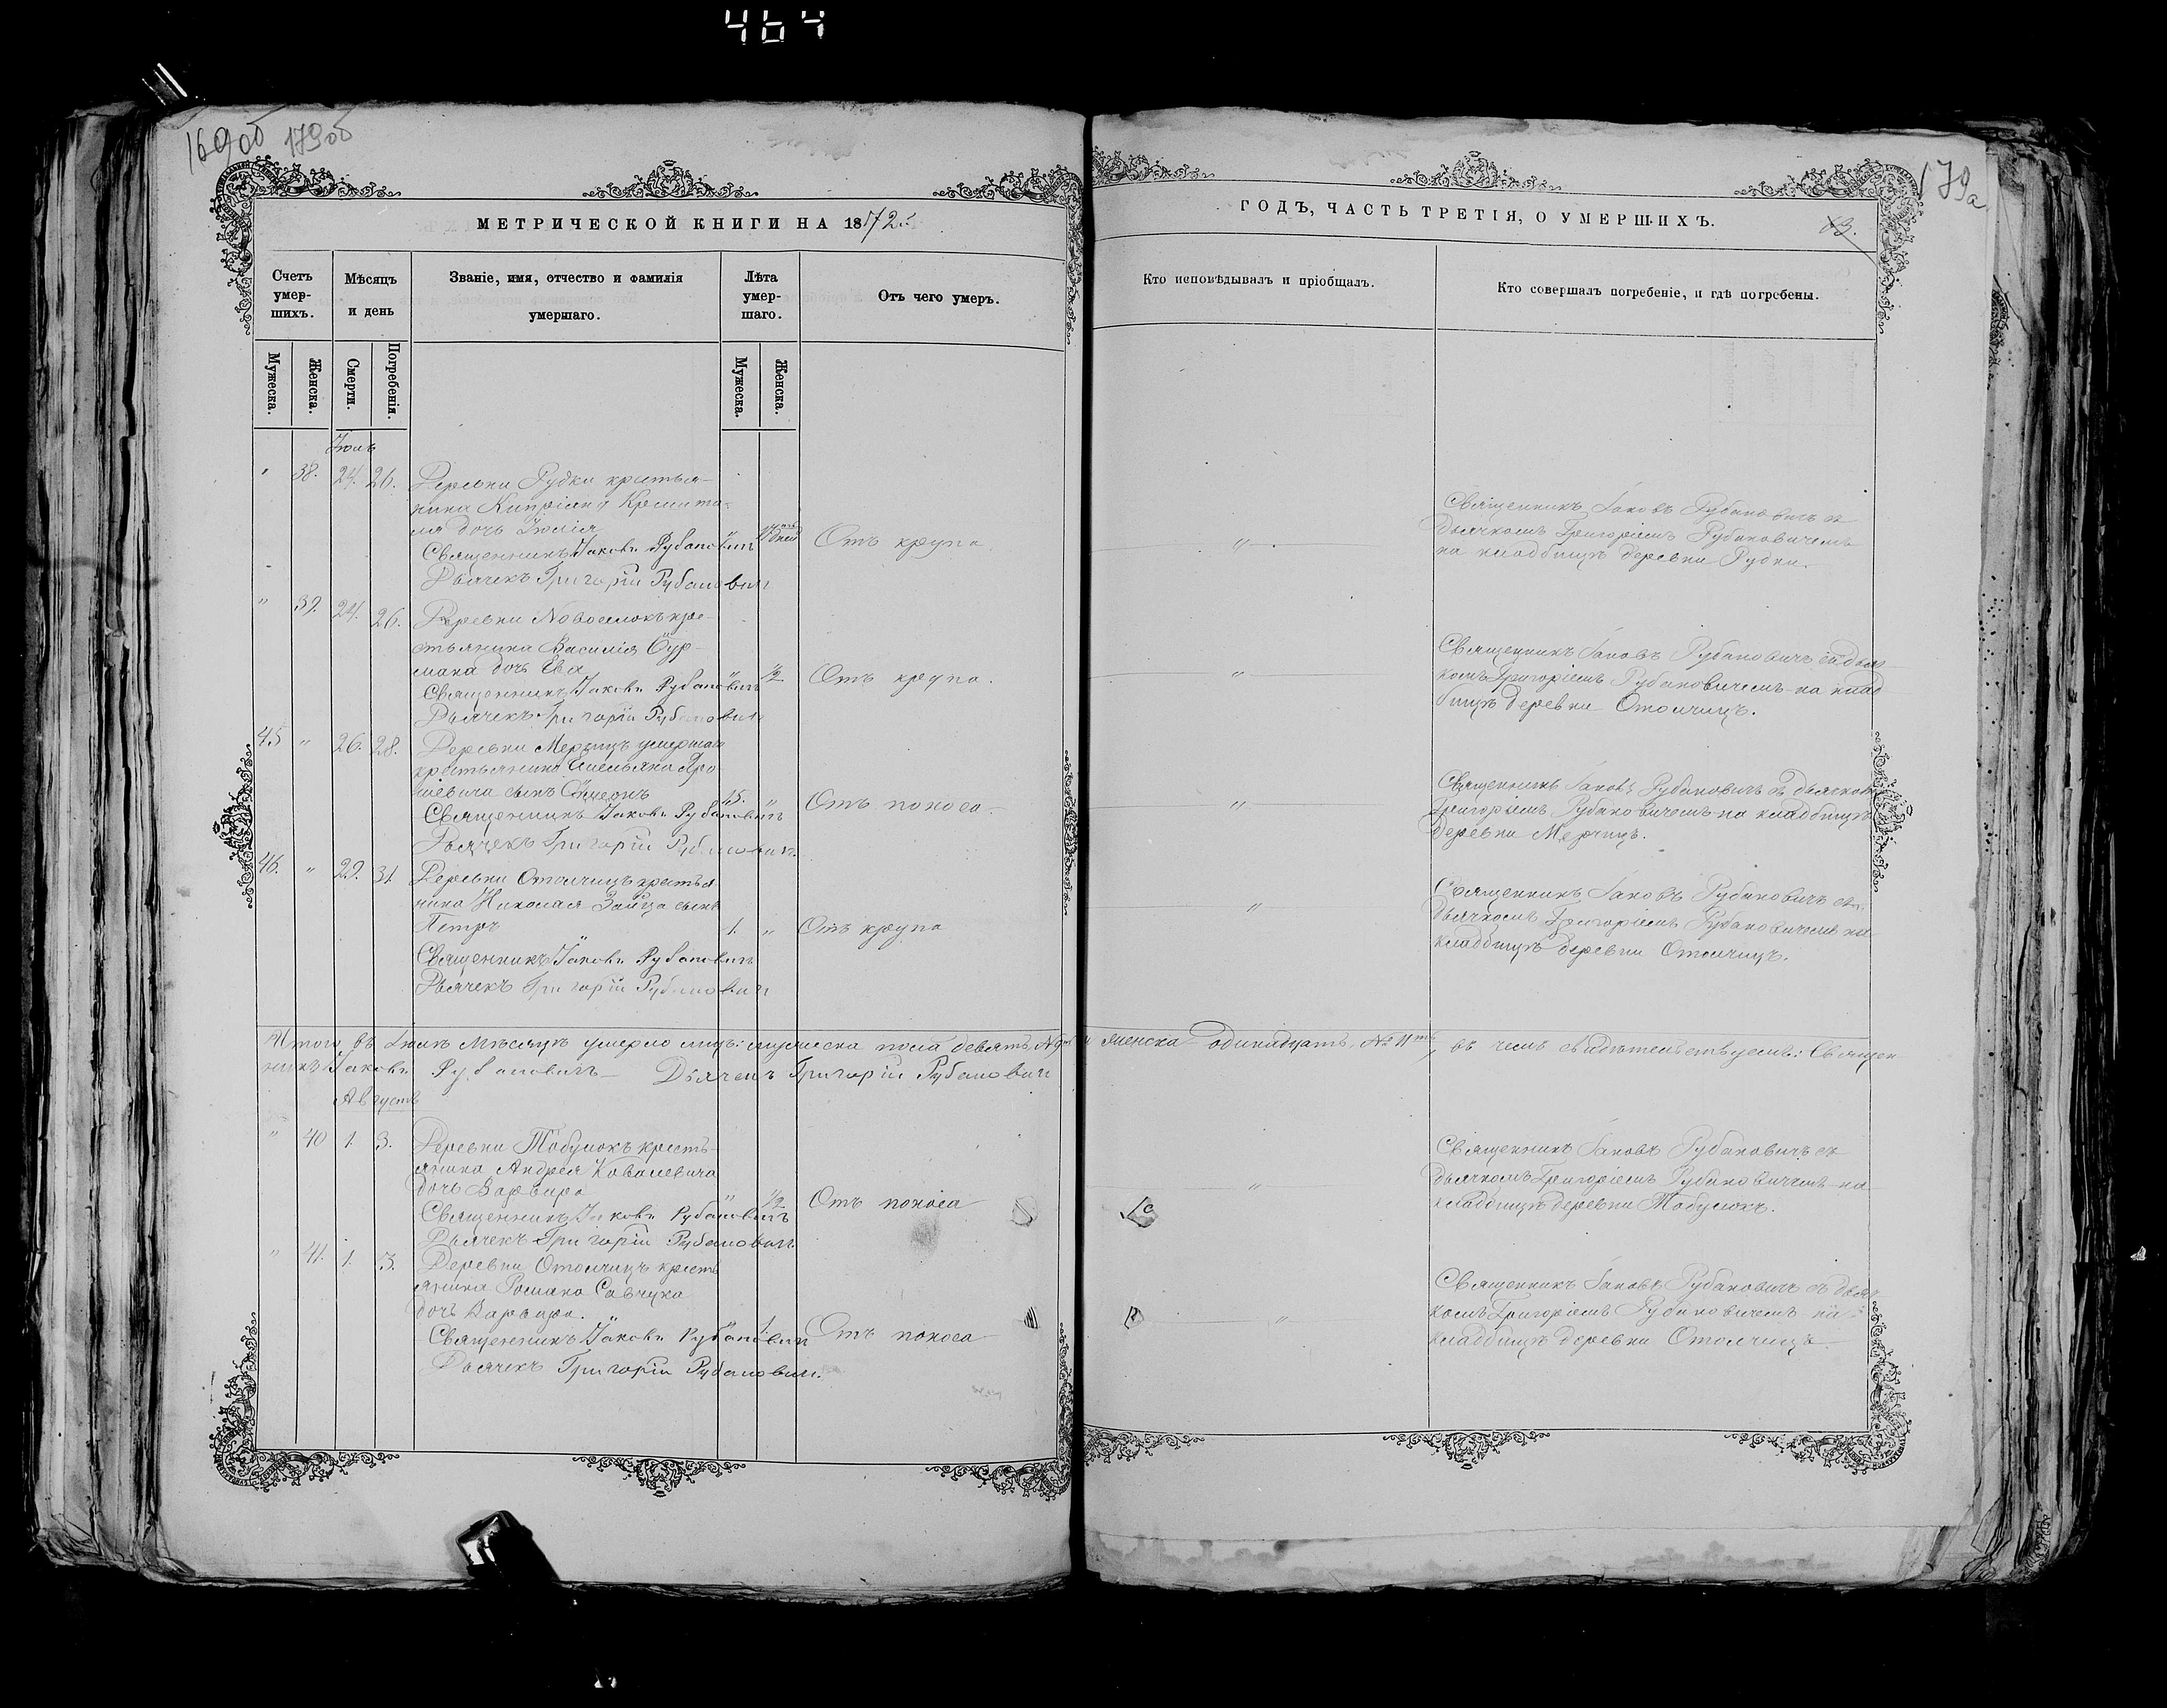 464
169об 179об
МЕТРИЧЕСКОЙ КНИГИ НА 1872
Счетъ умер-шихъ.
Мѣсяцъ и день
Званіе, имя, отчество и фамилія умершаго.
Лѣта умер-шаго.
Отъ чего умеръ.
Мужеска.
Женска.
Смерти.
Погребенія.
Мужеска.
Женска.
Іюль
" 38. 24. 26. Деревни Рудки крестья-
нина Кипріяна
дочь Юлія
дней Отъ крупа
Священникъ Іаковъ Рубановичъ
Дьячекъ Григорій Рубановичъ
" 39. 24. 26. Деревни Новоселокъ кре-
стьянина Василія Бур-
мака дочь Ева " 1/2 Отъ крупа.
Священникъ Іаковъ Рубановичъ
Дьячекъ Григорій Рубановичъ
45 " 26. 28. Деревни Мерчицъ умершаго
крестьянина Емельяна Яро-
шевича сынъ 15. " Отъ поноса
Священникъ Іаковъ Рубановичъ
Дьячекъ Григорій Рубановичъ
46. " 29. 31 Деревни Отолчицъ крестья-
нина Николая Зайца сынъ
Петръ 1. " Отъ крупа
Священникъ Іаковъ Рубановичъ
Дьячекъ Григорій Рубановичъ
Итого въ Іюлѣ мѣсяцѣ умерло лицъ: мужеска пола девять № 9
никъ Іаковъ Рубановичъ Дьячекъ Григорій Рубановичъ
Августъ
" 40 1. 3. Деревни Тобулокъ кресть-
янина Андрея Ковалевича
дочь Варвара " 1/2 Отъ поноса
Священникъ Іаковъ Рубановичъ
Дьячекъ Григорій Рубановичъ
" 41. 1. 3. Деревни Отолчицъ кресть
янина Романа Савчука
дочь Варвара. " 1. Отъ поноса
Священникъ Іаковъ Рубановичъ
Дьячекъ Григорій Рубановичъ.
179а
ГОДЪ, ЧАСТЬ ТРЕТІЯ, О УМЕРШИХЪ.
Кто исповѣдывалъ и пріобщалъ.
Кто совершалъ погребеніе, и гдѣ погребены.
Священникъ Іаковъ Рубановичъ съ
дьячкомъ Григоріемъ Рубановичемъ
" на кладбищѣ деревни Рудки.
Священникъ Іаковъ Рубановичъ съ дьяч-
" комъ Григоріемъ Рубановичемъ на клад
бищѣ деревни Отолчицъ.
Священникъ Іаковъ Рубановичъ съ дьячкомъ
" Григоріемъ Рубановичемъ на кладбищѣ
деревни Мерчицъ.
Священникъ Іаковъ Рубановичъ съ
" дьячкомъ Григоріемъ Рубановичемъ на
кладбищѣ деревни Отолчицъ.
и женска одинадцать № 11 въ чемъ свидѣтельствуемъ: Священ
Священникъ Іаковъ Рубановичъ съ
" дьячкомъ Григоріемъ Рубановичемъ на
кладбищѣ деревни Тобулокъ.
Священникъ Іаковъ Рубановичъ съ дьяч
" комъ Григоріемъ Рубановичемъ на
кладбищѣ деревни Отолчицъ.